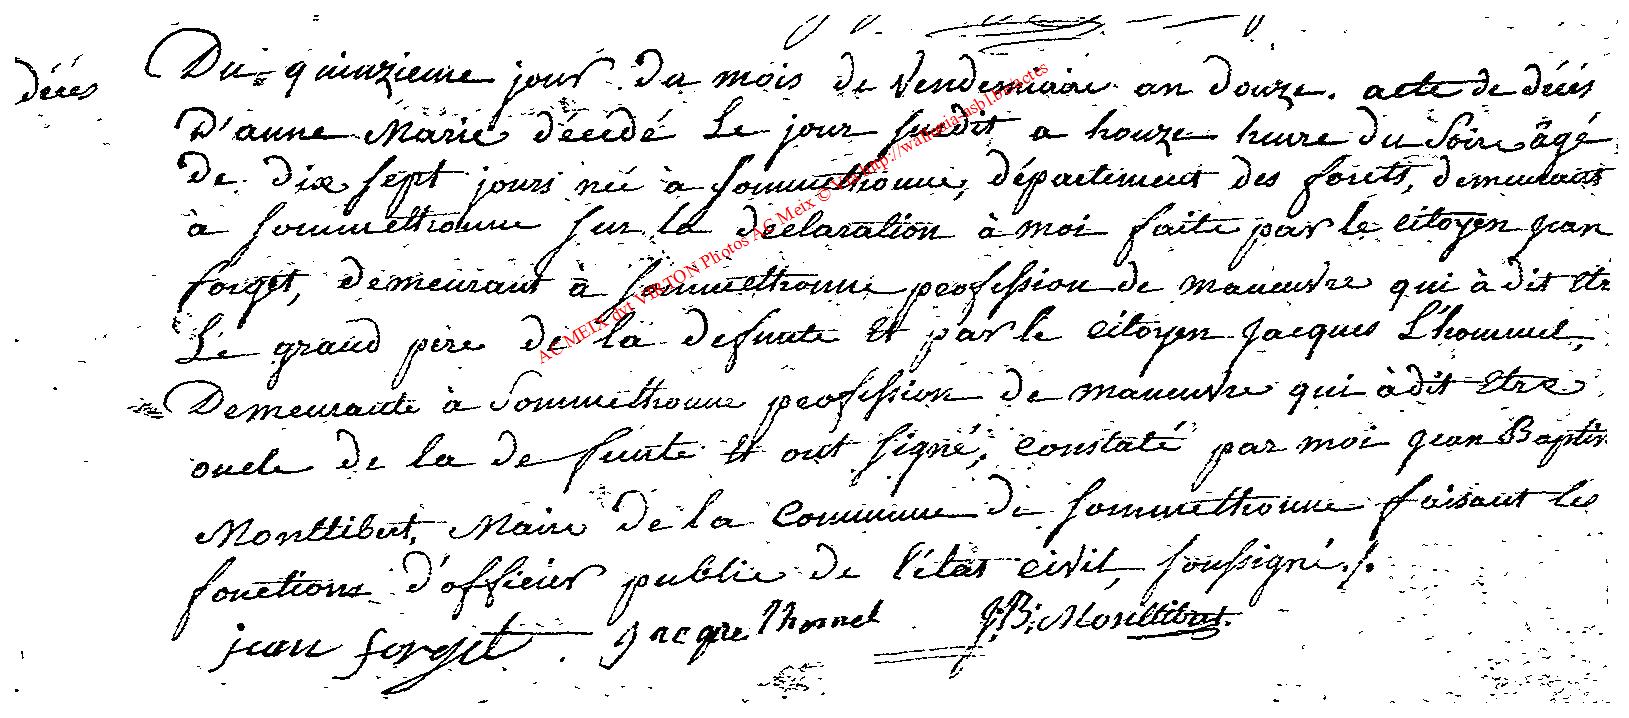 décés
Du quinzieme jour du mois de Vendemiaire an douze. acte de décés
D'anne Marie décédé Le jour susdit a houze heure du Soire âgé
de dix sept jours née à Sommethonne, département des forets, demeurant
à Sommethonne sur la declaration à moi faite par le citoyen jean
forget, demeurant à Sommethonne profession de maneuvre qui à dit etr
Le grand pere de la defunte et par le citoyen jacques L'hommel,
Demeurante à Sommethonne profession de maneuvre qui à dit etre
oncle de la de funte et ont signé, constaté par moi jean Baptis
Monttibert, Maire de la Commune de Sommethonne faisant les
fonctions d'officier public de l'état civil, soussigné./.
jean forget. jacque lhommel J:B: Monttibert.
AC MEIX dvt VIRTON Photos AC Meix © via http://wallonia-asbl.be/actes